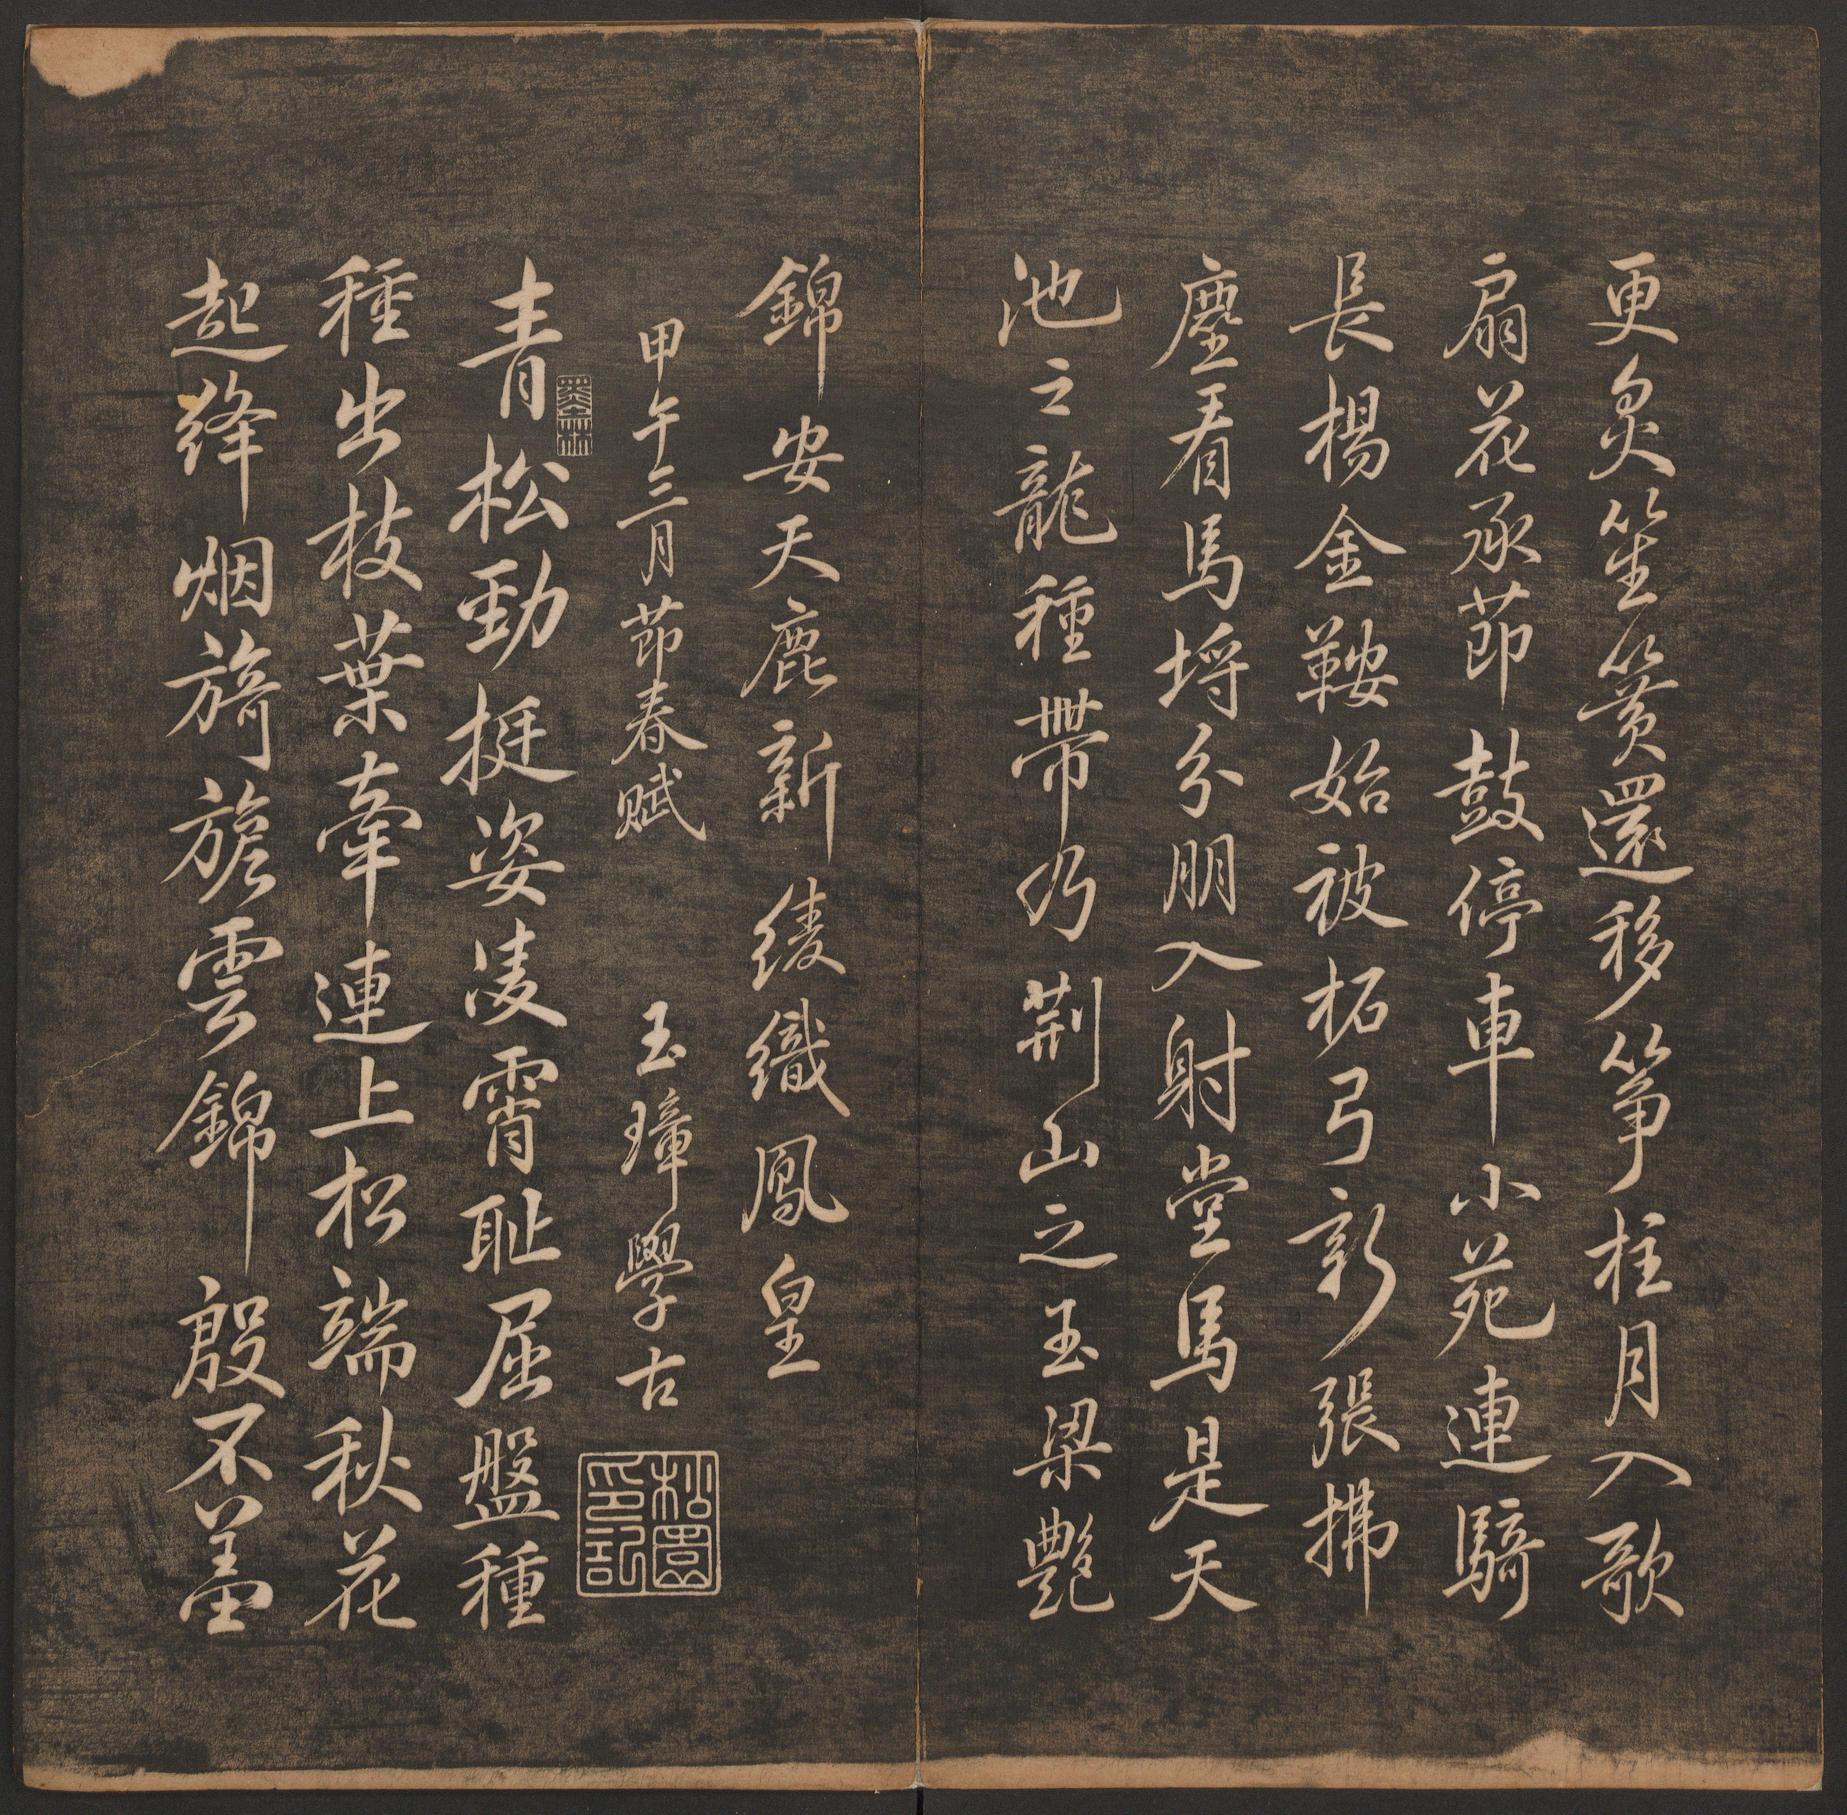 更炙笙簧還移筝柱月入歌
扇花承節鼓停車小苑連騎
長楊金鞍始被柘弓新張拂
塵看馬埒分朋入射堂馬是天
池之龍種帶乃荆山之玉梁艷
錦安天鹿新綾織鳳皇
甲午三月節春賦 玉璋學古
松園印記
青松勁挺姿凌霄耻屈盤種
墨林
種出枝葉牽連上松端秋花
起絳烟旖旎雲錦殷不羞